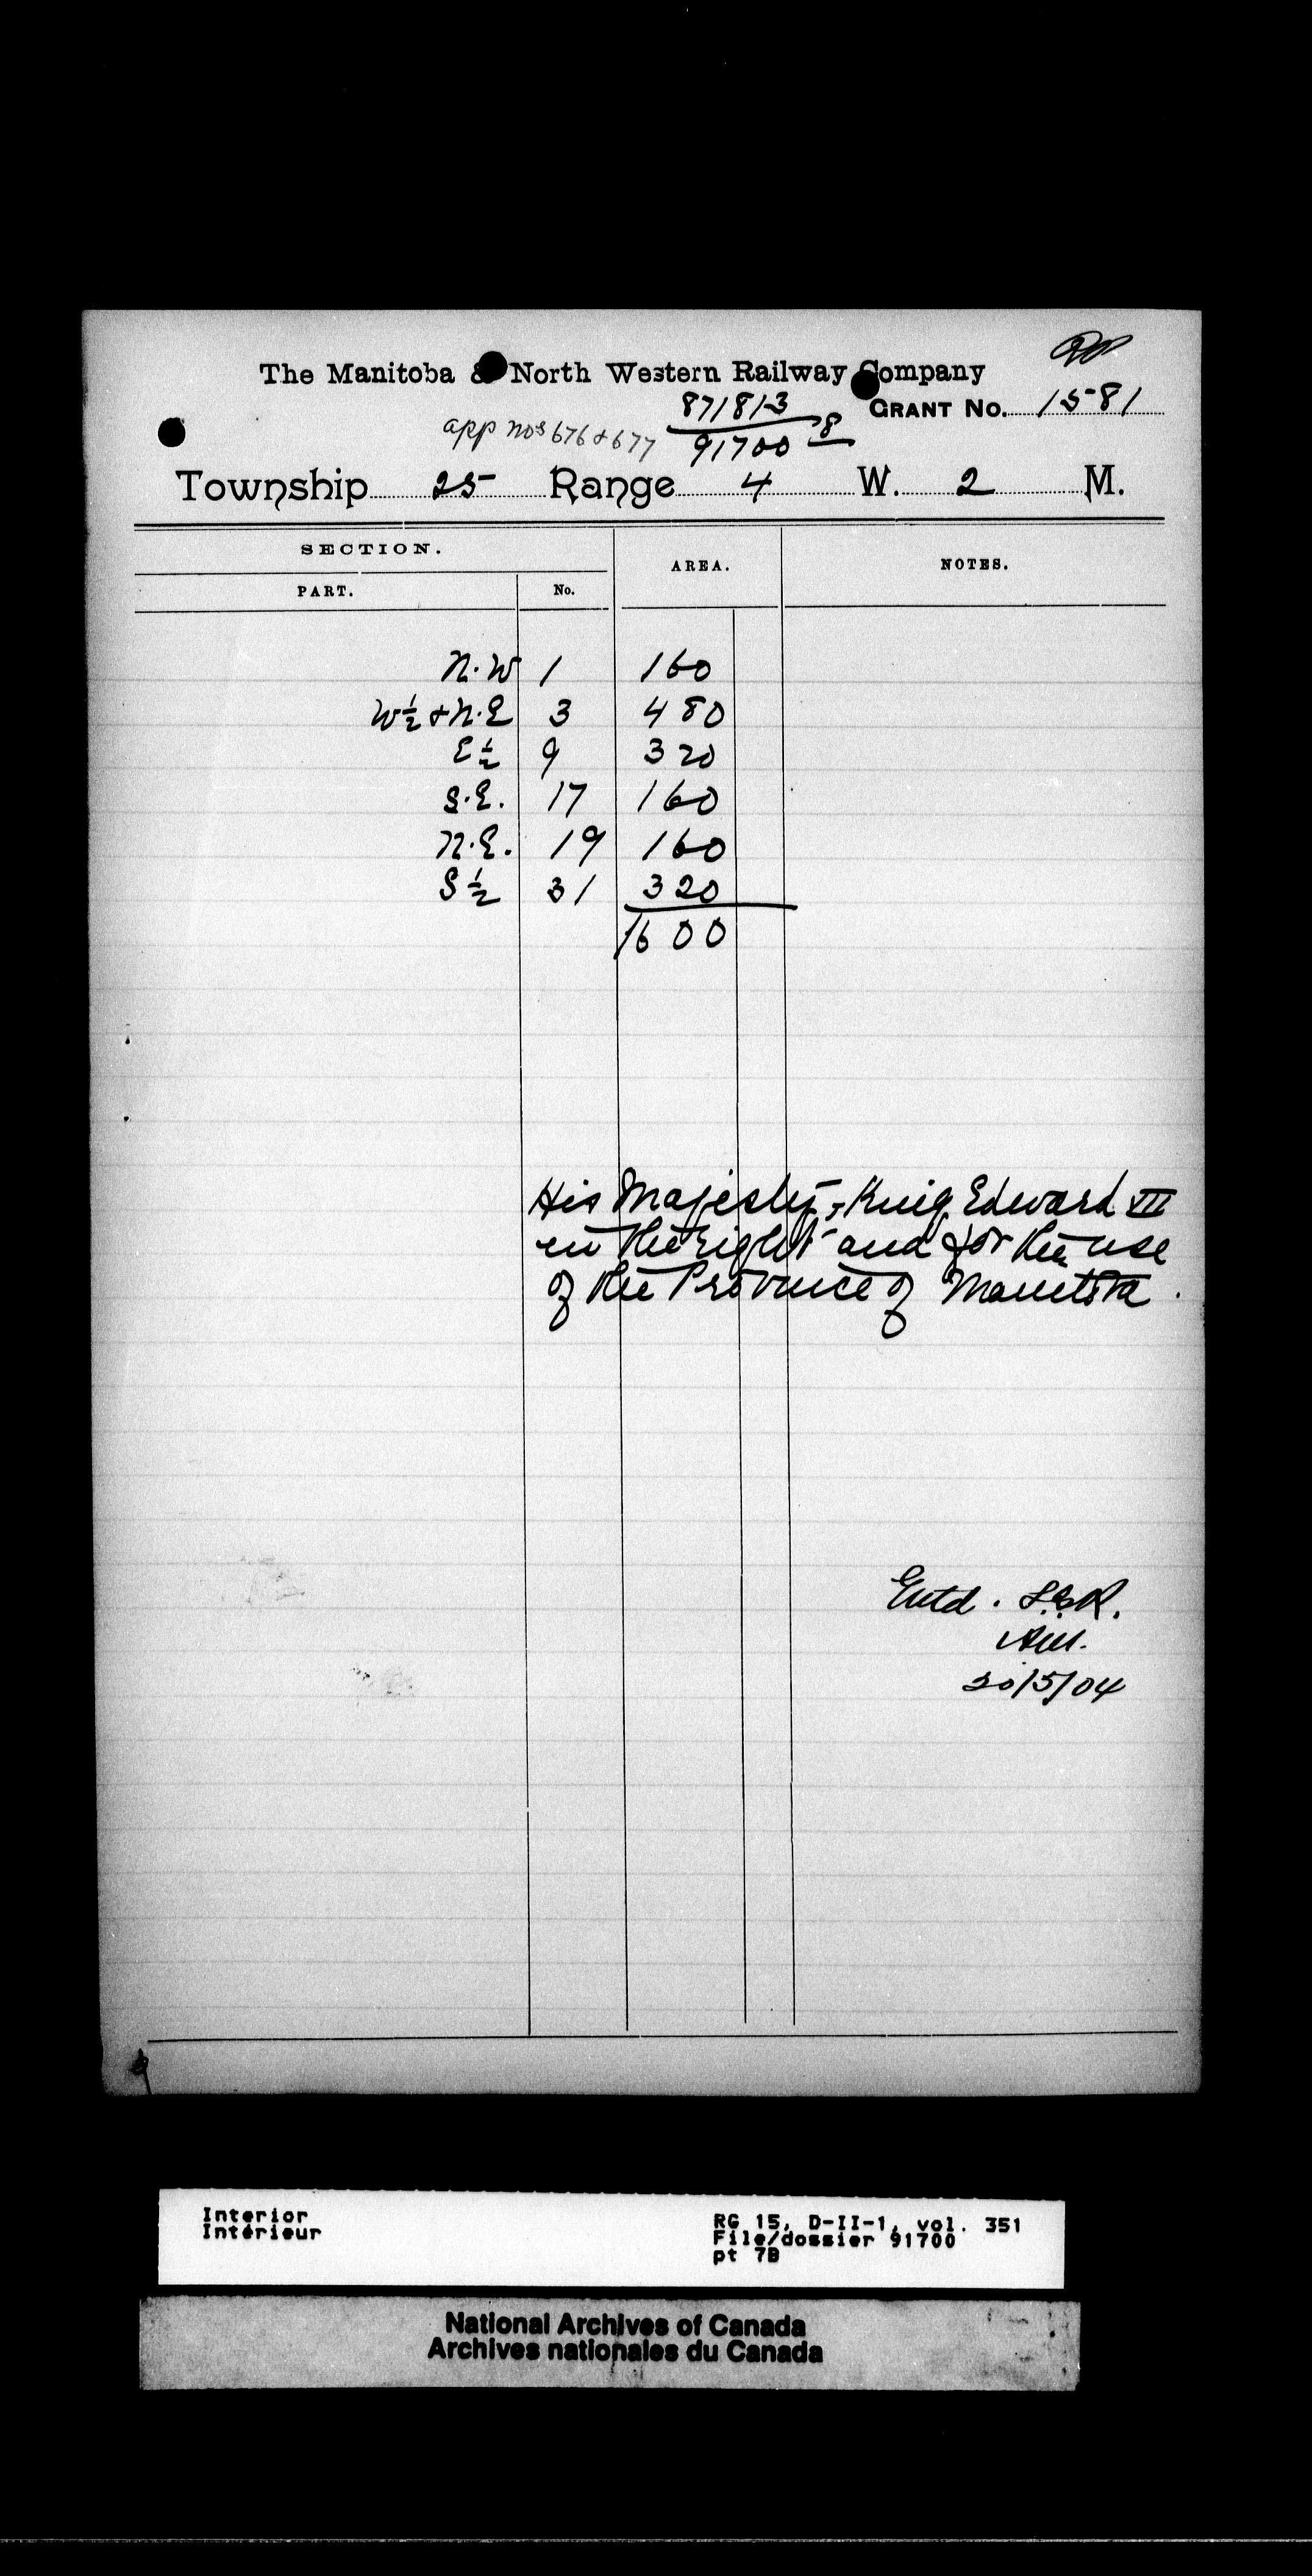 The Manitoba & North Western Railway Company
GRANT No. 1581
871813
app nos 676 & 677
91700 8
Township 25 Range 4 W. 2 M.
SECTION. AREA. NOTES.
PART. No.
N.W 1 160
W½ & N.E 3 480
E½ 9 320
S.E. 17 160
N.E. 19 160
S½ 31 320
1600
His Majesty, King Edward VII
in the right and for the use
of the Province of Manitoba.
Entd.
/5/04
Interior
Intérieur
RG 15, D-II-1, vol. 351
File/dossier 91700
pt 7B
National Archives of Canada
Archives nationales du Canada